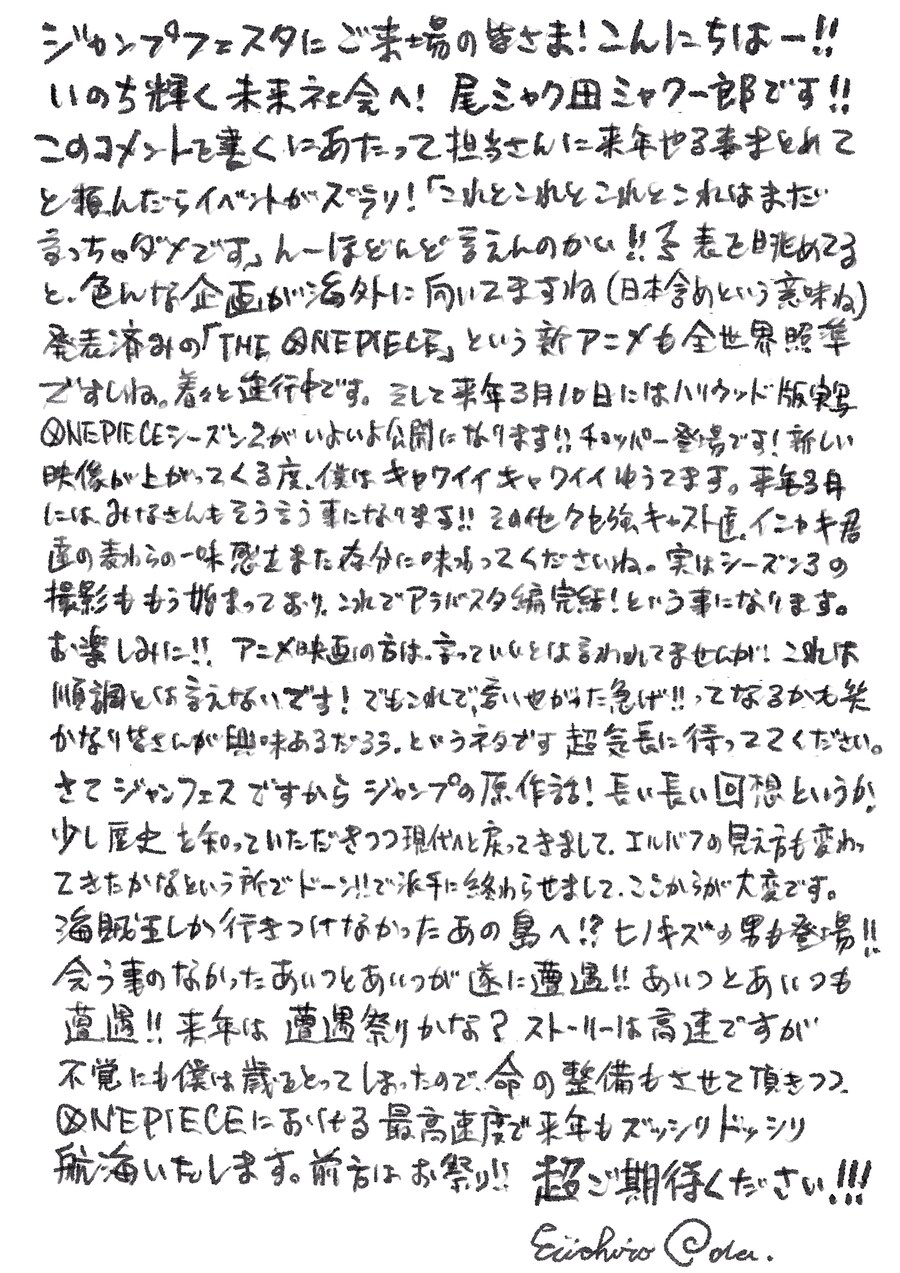 ジャンプフェスタにご来場の皆さま!こんにちはー!!
いのち輝く未来社会へ! 尾ミャク田ミャク一郎です!!
このコメントを書くにあたって担当さんに来年やる事まとめて
と頼んだらイベントがズラリ!「これとこれとこれとこれはまだ
言っちゃダメです」んーほどんど言えんのかい!!まあ表を眺めてる
と、色んな企画が海外に向いてますね(日本含めという意味ね)
発表済みの「THE ONE PIECE」という新アニメも全世界照準
ですしね。着々と進行中です。そして来年3月10日にはハリウッド版実写
ONE PIECEシーズン2がいよいよ公開になります!!チョッパー登場です!新しい
映像が上がってくる度、僕はキャワイイキャワイイゆうてます。来年3月
には、みなさんもそう言う事になります!!その他クセ強キャスト達、イニャキ君
達の麦わらの一味感をまた存分に味わってくださいね。実はシーズン3の
撮影ももう始まっており、これでアラバスタ編完結!という事になります。
お楽しみに!! アニメ映画の方は、言っていいとは言われてませんが!これは
順調とは言えないです!でもこれで、言いやがった急げ!!ってなるかも笑
かなり皆さんが興味あるだろう、というネタです超気長に待っててください。
さてジャンフェスですからジャンプの原作話!長い長い回想というか、
少し歴史を知っていただきつつ現代へと戻ってきまして、エルバフの見え方も変わっ
てきたかなという所でドーン!!で派手に終わらせまして、ここからが大変です。
海賊王しか行きつけなかったあの島へ!?ヒノキズの男も登場!!
会う事のなかったあいつとあいつが遂に遭遇!!あいつとあいつも
遭遇!!来年は遭遇祭りかな?ストーリーは高速ですが
不覚にも僕は歳をとってしまったので、命の整備もさせて頂きつつ、
ONE PIECEにおける最高速度で来年もズッシリドッシリ
航海いたします。前方はお祭り!! 超ご期待ください!!!
Eiichiro Oda.